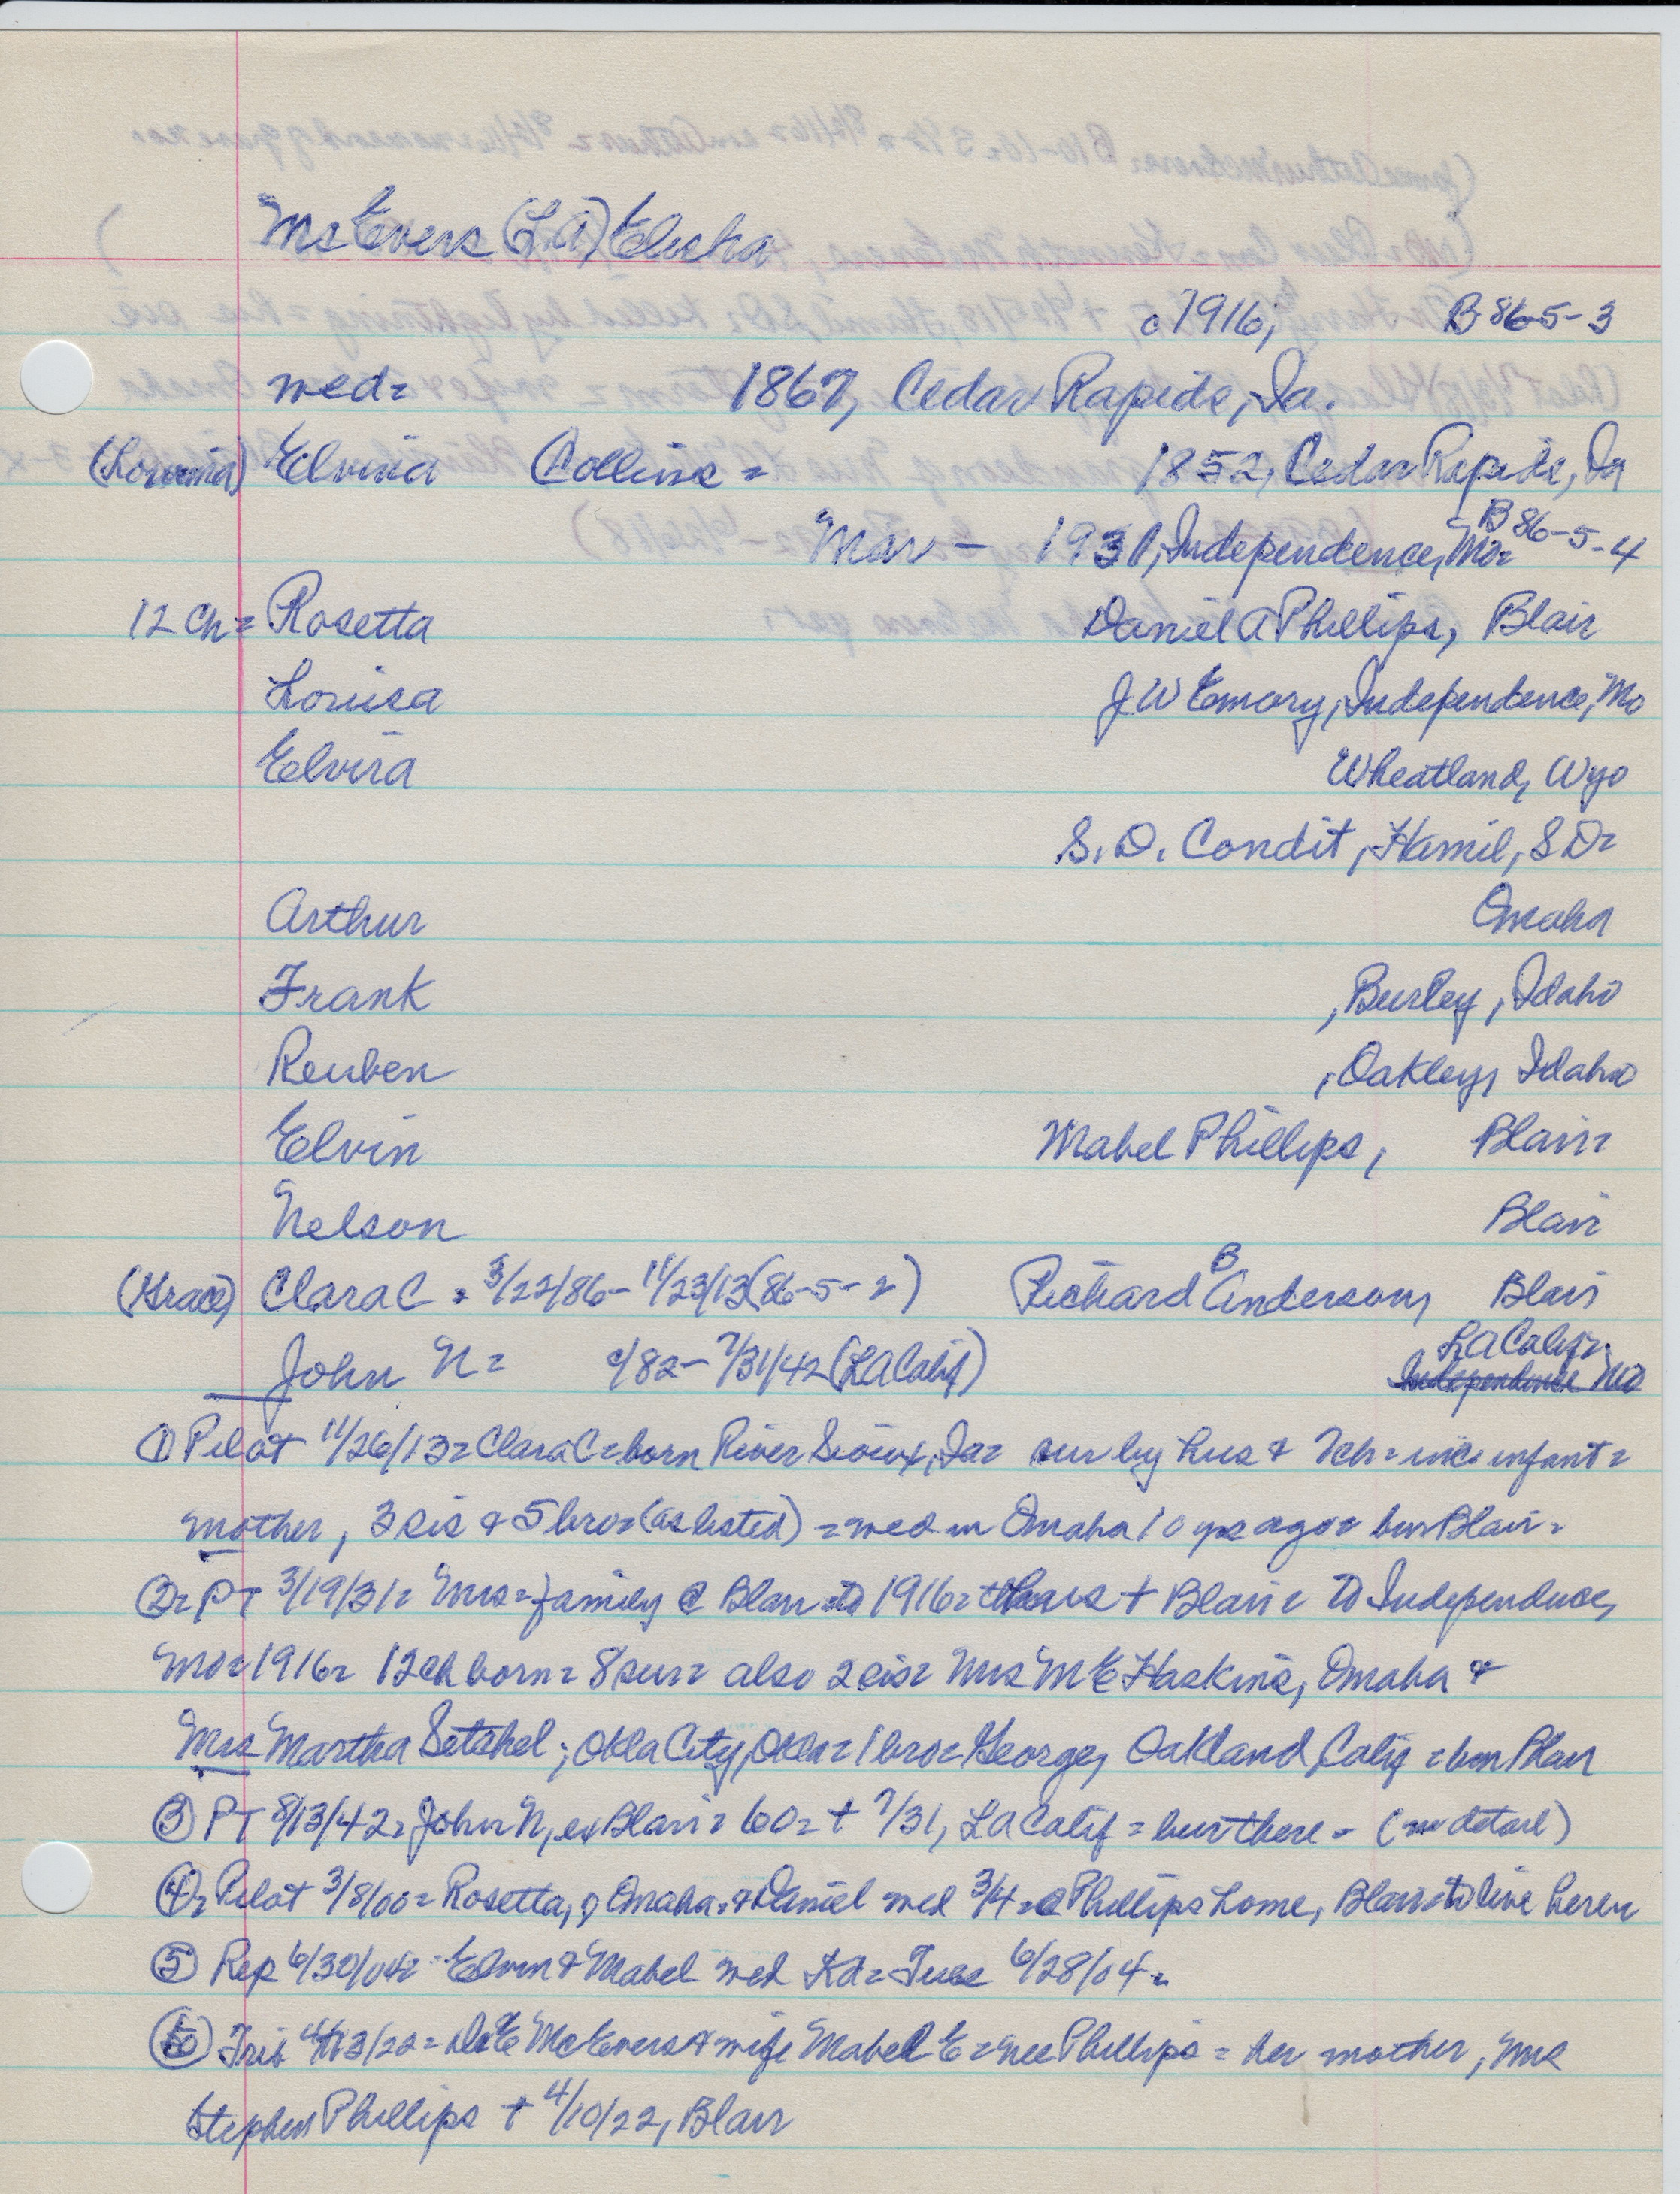 McEvers (L.A) Elisha
c1916; B 86-5-3
med= 1867, Cedar Rapids, Ia.
(Lovinia) Elvina Collins = 1852, Cedar Rapids, Ia
Mar - 1931, Independence, Mo= B 86-5-4
12 Ch= Rosetta Daniel A Phillips, Blair
Louisa J W Emory, Independence, Mo
Elvira Wheatland, Wyo
S. D. Condit, Hamil, S D=
Arthur Omaha
Frank , Burley, Idaho
Reuben , Oakley, Idaho
Elvin Mabel Phillips, Blair=
Nelson Blair
(Grace) Clara C = 3/22/86- 11/23/13(86-5-2) Richard B Anderson, Blair
John N= c/82- 7/31/42 (LA Calif) LA Calif= Independence Mo
① Pilot 11/26/13= Clara C= born River Sioux, Ia= sur by hus & 7ch= inc infant=
mother, 3 sis & 5 bro= (as listed) = med in Omaha 10 yrs ago= bur Blair=
②= PT 3/19/31= Mrs= family @ Blair to 1916= + Blair= to Independence,
Mo= 1916= 12 ch born= 8 sur= also 2 sis= Mrs M E Haskins, Omaha &
Mrs Martha Setchel; Okla City, Okla= 1 bro= George, Oakland, Calif = bur Blair
③ PT 8/13/42= John N, ex Blair= 60= + 7/31, LA Calif = bur there - (no detail)
④= Pilot 3/8/00= Rosetta, o Omaha= & Daniel med 3/4= @ Phillips home, Blair= to live here=
⑤ Rep 6/30/04= Elvin & Mabel med Kd= Tues 6/28/04=
⑥ Trib 4/13/22= D E McEvers & wife Mabel E= nee Phillips = her mother, Mrs
Stephen Phillips + 4/10/22, Blair